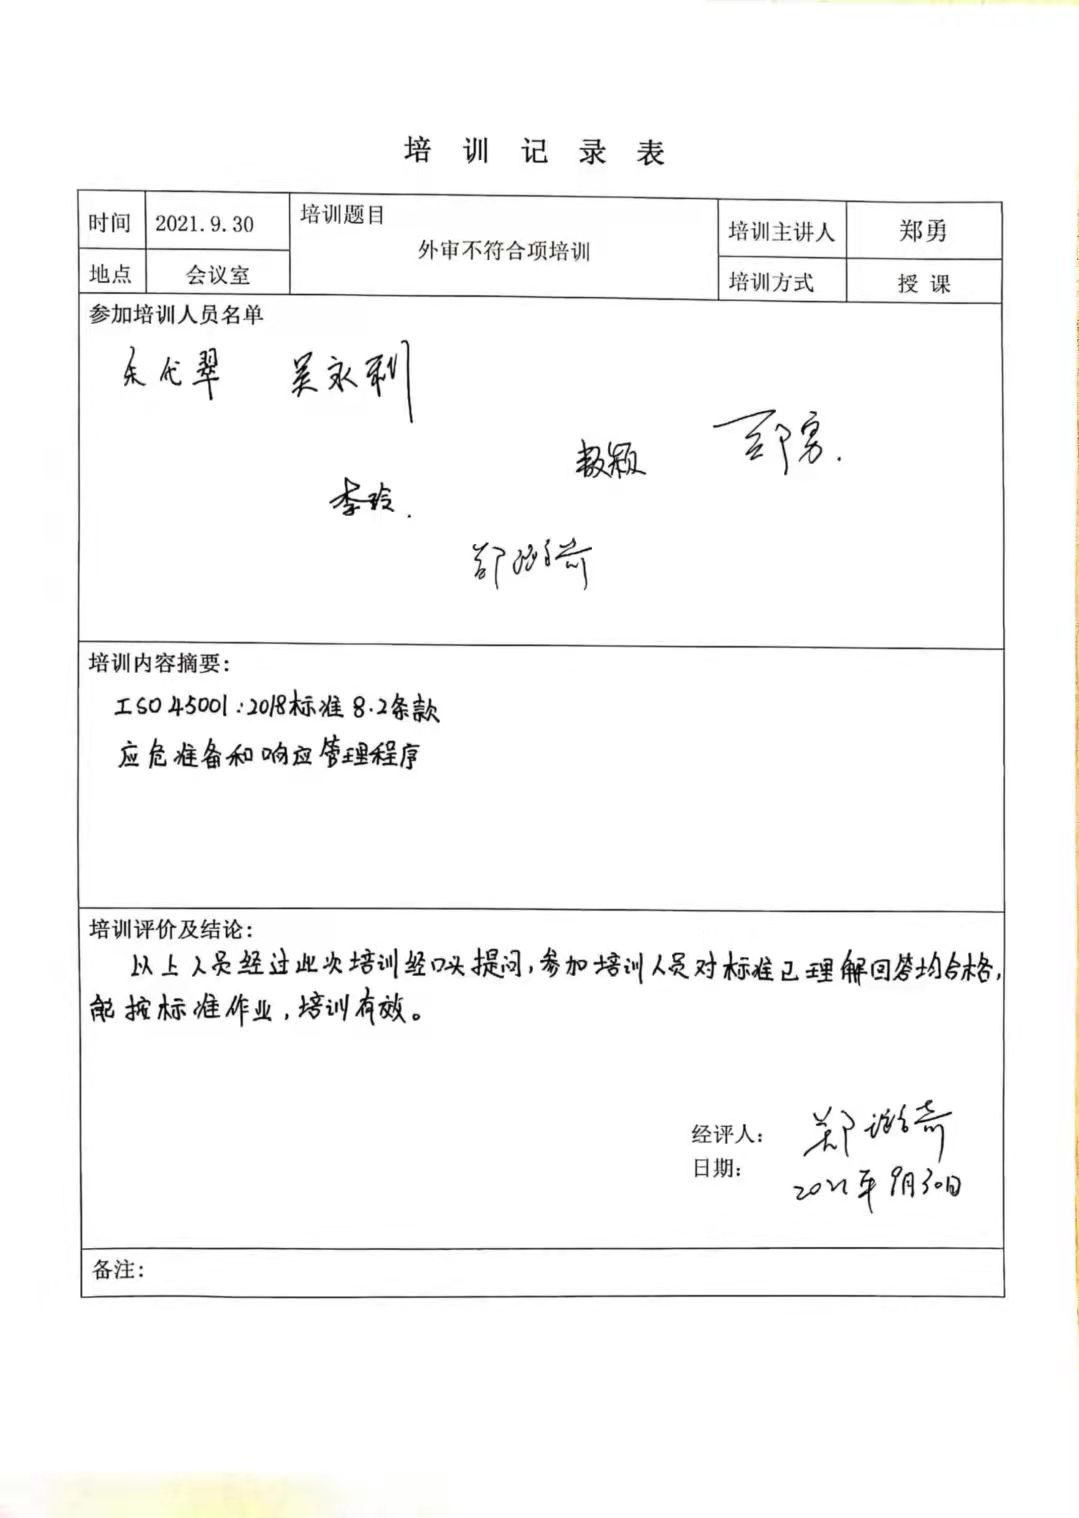 培训记录表
时间 2021.9.30 培训题目 外审不符合项培训 培训主讲人 郑勇
地点 会议室 培训方式 授课
参加培训人员名单
吴永利
郑勇.
李玲.
培训内容摘要:
ISO 45001:2018标准 8.2条款
应急准备和响应管理程序
培训评价及结论:
以上人员经过此次培训经口头提问,参加培训人员对标准已理解回答均合格,
能按标准作业,培训有效。
经评人:
日期: 2021年9月30日
备注: